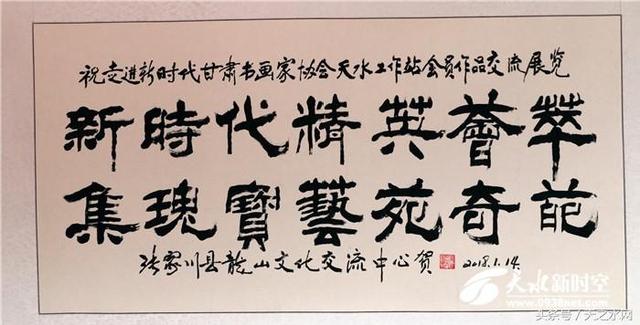 祝走进新时代甘肃书画家协会天水工作站会员作品交流展览
新時代精英薈萃
集瑰寶藝苑奇葩
张家川县龍山文化交流中心贺 2018.1.14
天水新时空
www.0938net.com
头条号/天之水网